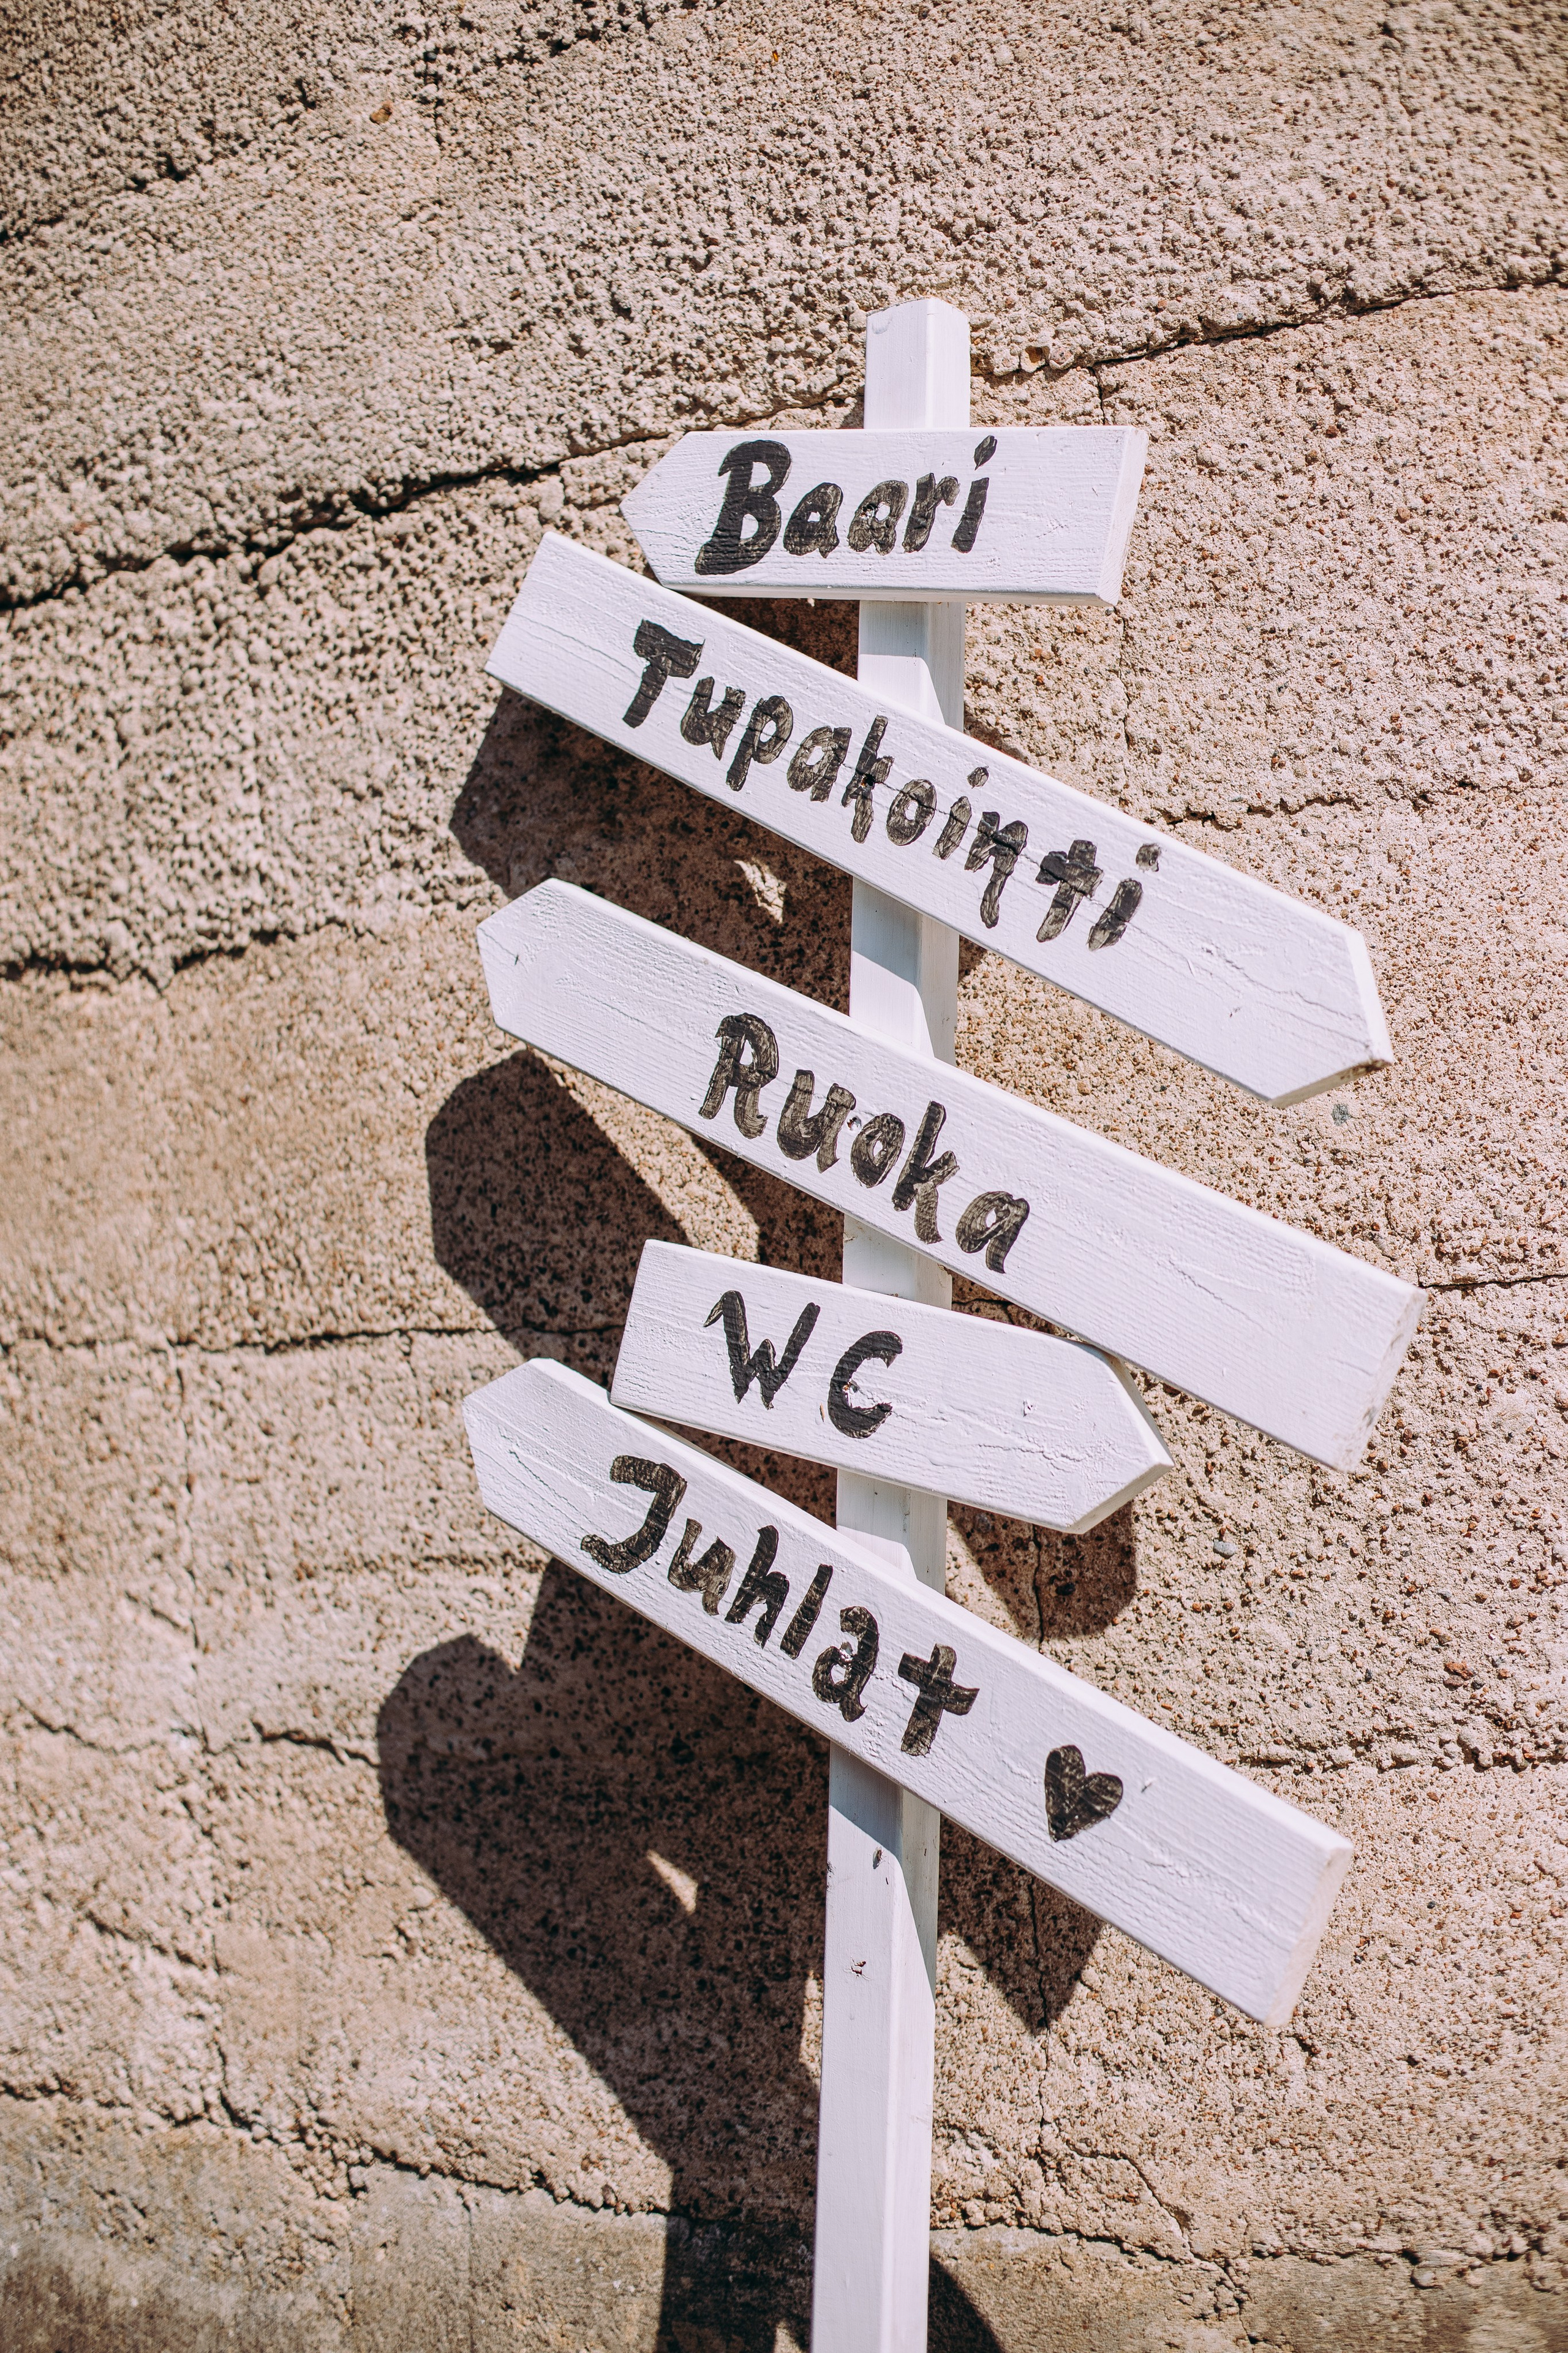 Baari
Tupakointi
Ruoka
WC
Juhlat ♥